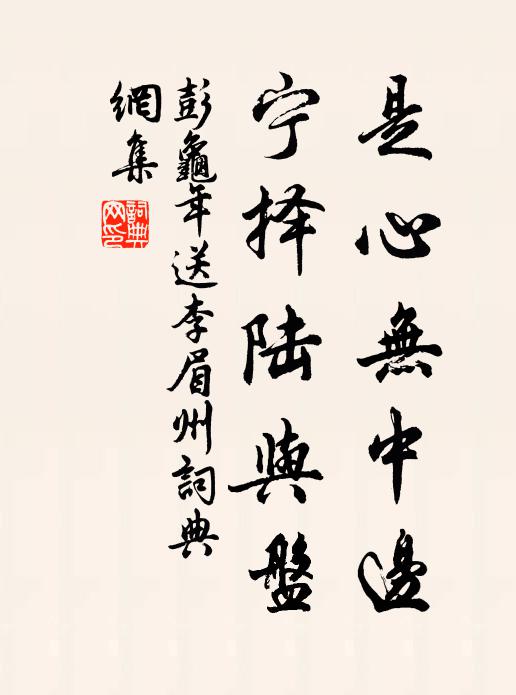 是心無中邊
宁择陆與盤
彭龜年送李眉州詞典
網集
詞典
网印